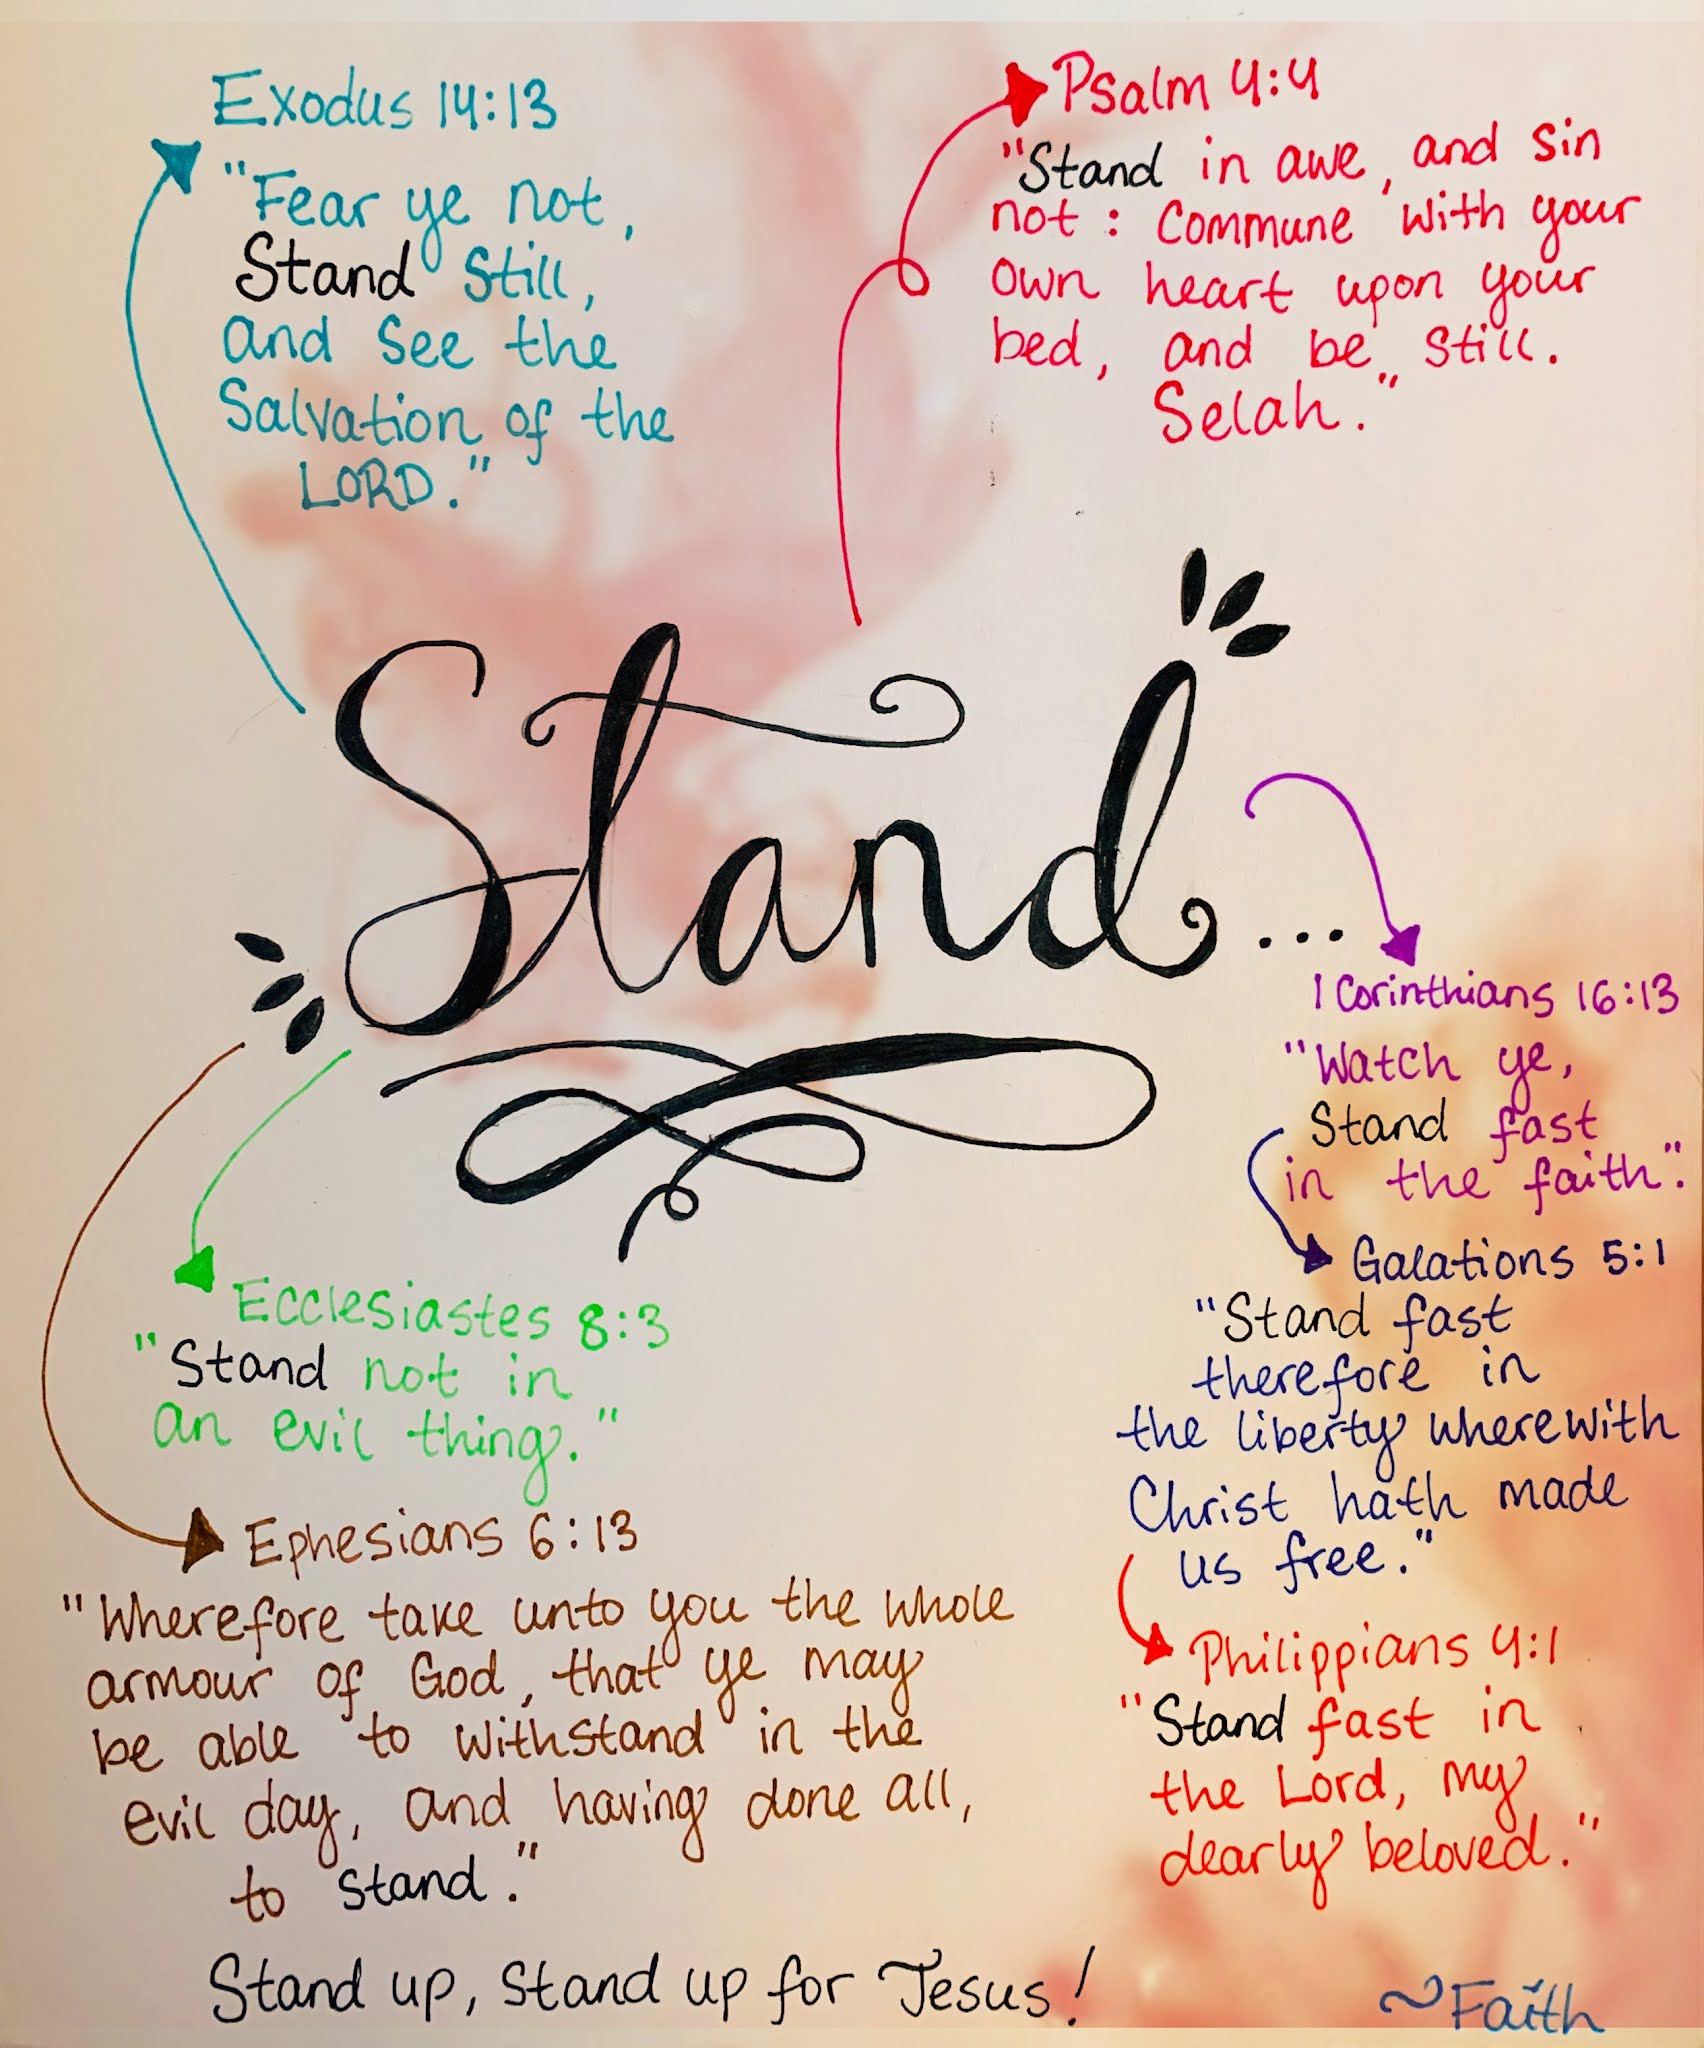 Exodus 14:13
"Fear ye not,
Stand still,
and see the
Salvation of the
LORD."
Psalm 4:4
"Stand in awe, and sin
not: Commune with your
own heart upon your
bed, and be still.
Selah."
Stand...
1 Corinthians 16:13
"Watch ye,
Stand fast
in the faith".
Galations 5:1
"Stand fast
therefore in
the liberty wherewith
Christ hath made
us free."
Philippians 4:1
"Stand fast in
the Lord, my
dearly beloved."
Ecclesiastes 8:3
"Stand not in
an evil thing."
Ephesians 6:13
"Wherefore take unto you the whole
armour of God, that ye may
be able to withstand in the
evil day, and having done all,
to stand."
Stand up, Stand up for Jesus!
~Faith